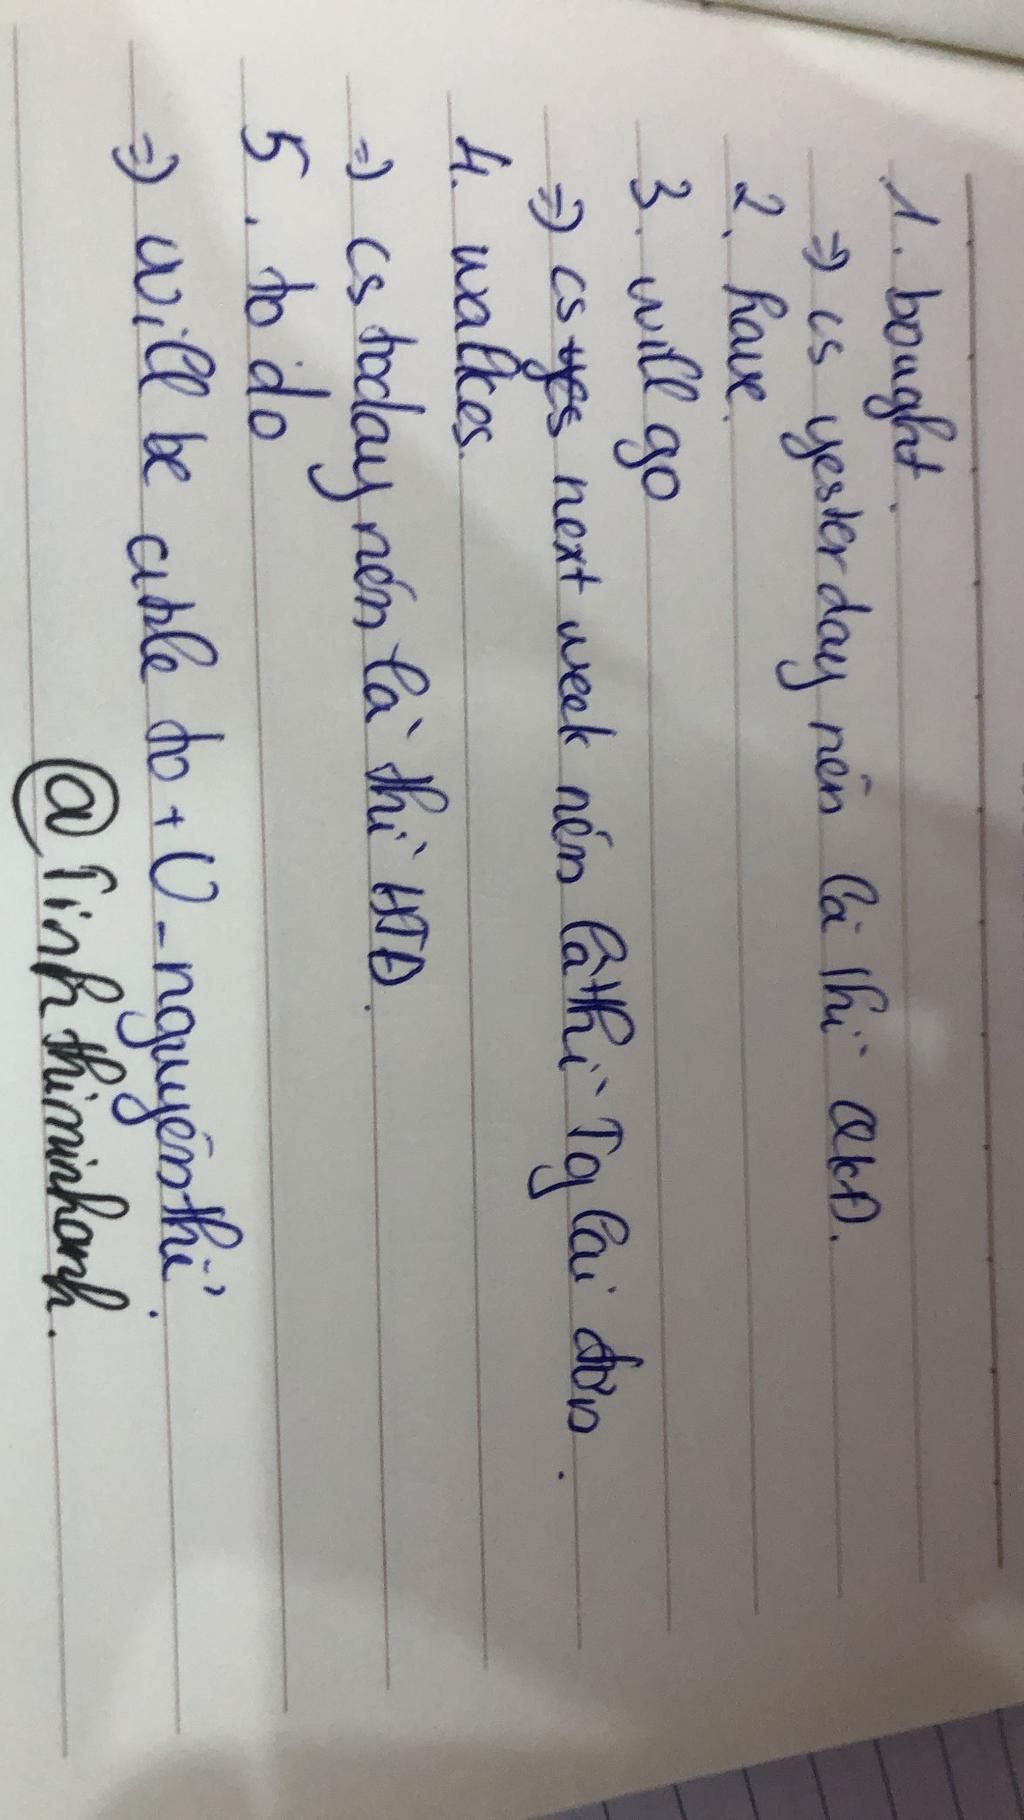 1. bought.
=) cs yesterday nên là thì QKĐ.
2. have.
3. will go
=) cs yes next week nên là thì Tg lai đơn.
4. walkes.
=) cs today nên là thì HTĐ.
5. to do
=) will be able to + V_nguyên thể.
@Tinhthiminhanh.